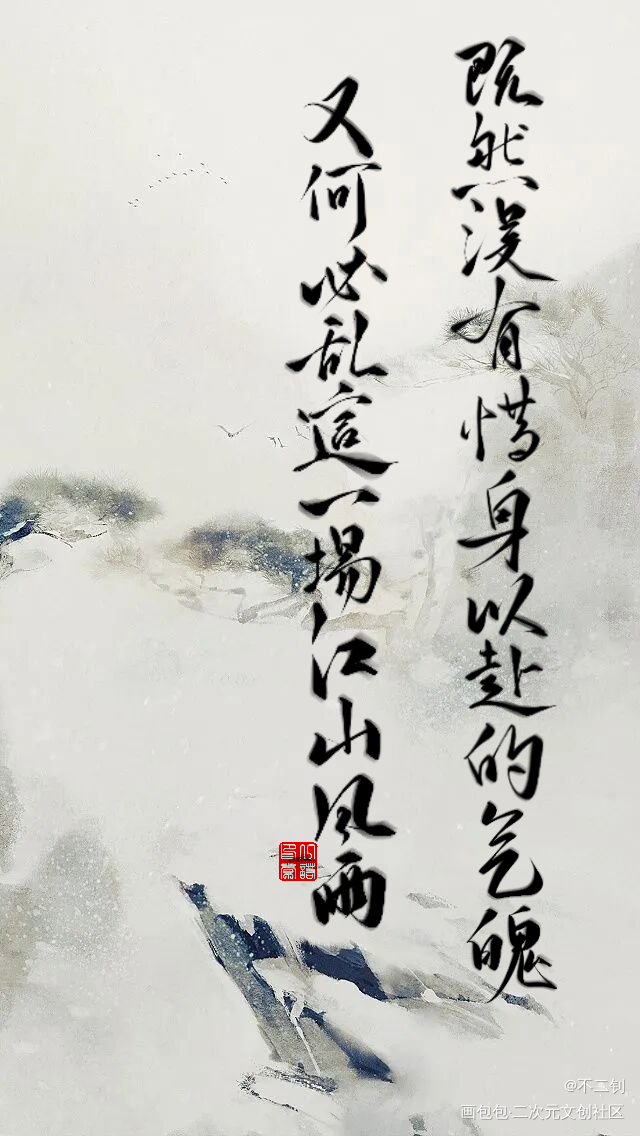 既然没有惜身以赴的气魄
又何必乱這一場江山风雨
@不二钊
画包包·二次元文创社区